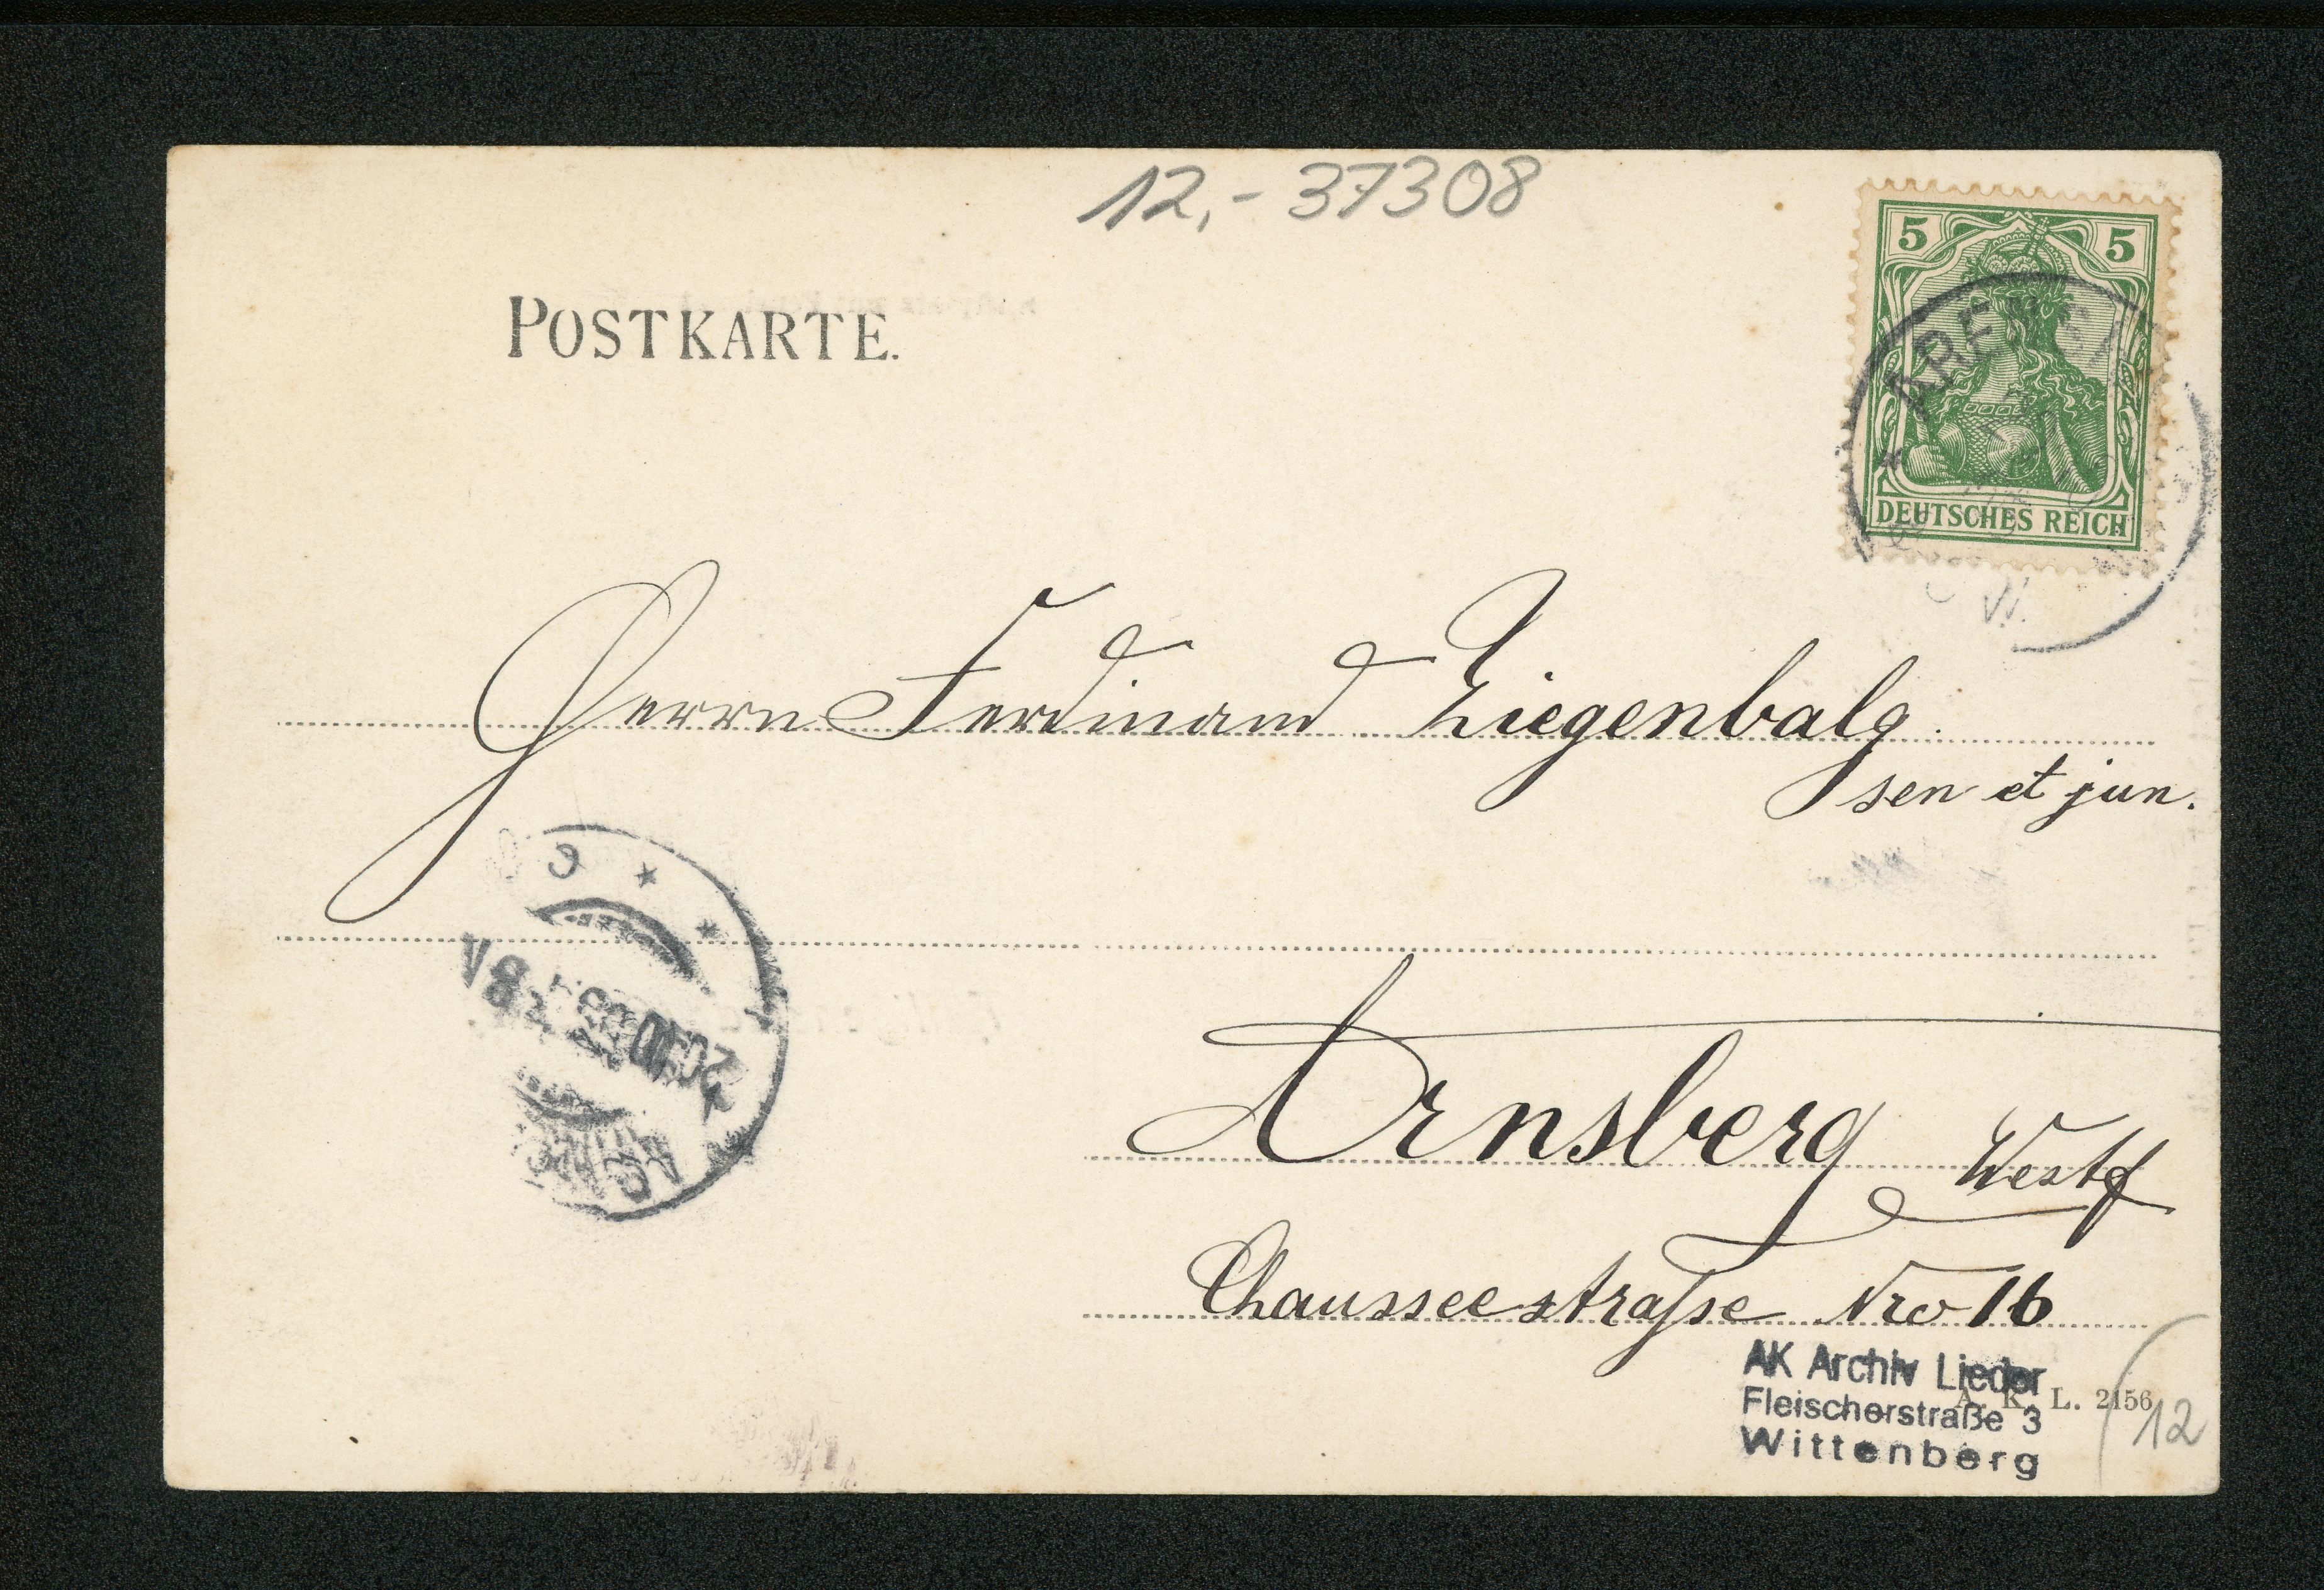 12,- 37308
5 5
POSTKARTE.
DEUTSCHES REICH
Herrn Ferdinand Ziegenbalg
sen et jun.
Arnsberg Westf
Chausseestraße Nro 16
AK Archiv Lieder
Fleischerstraße 3
Wittenberg
A. K. L. 2156
12